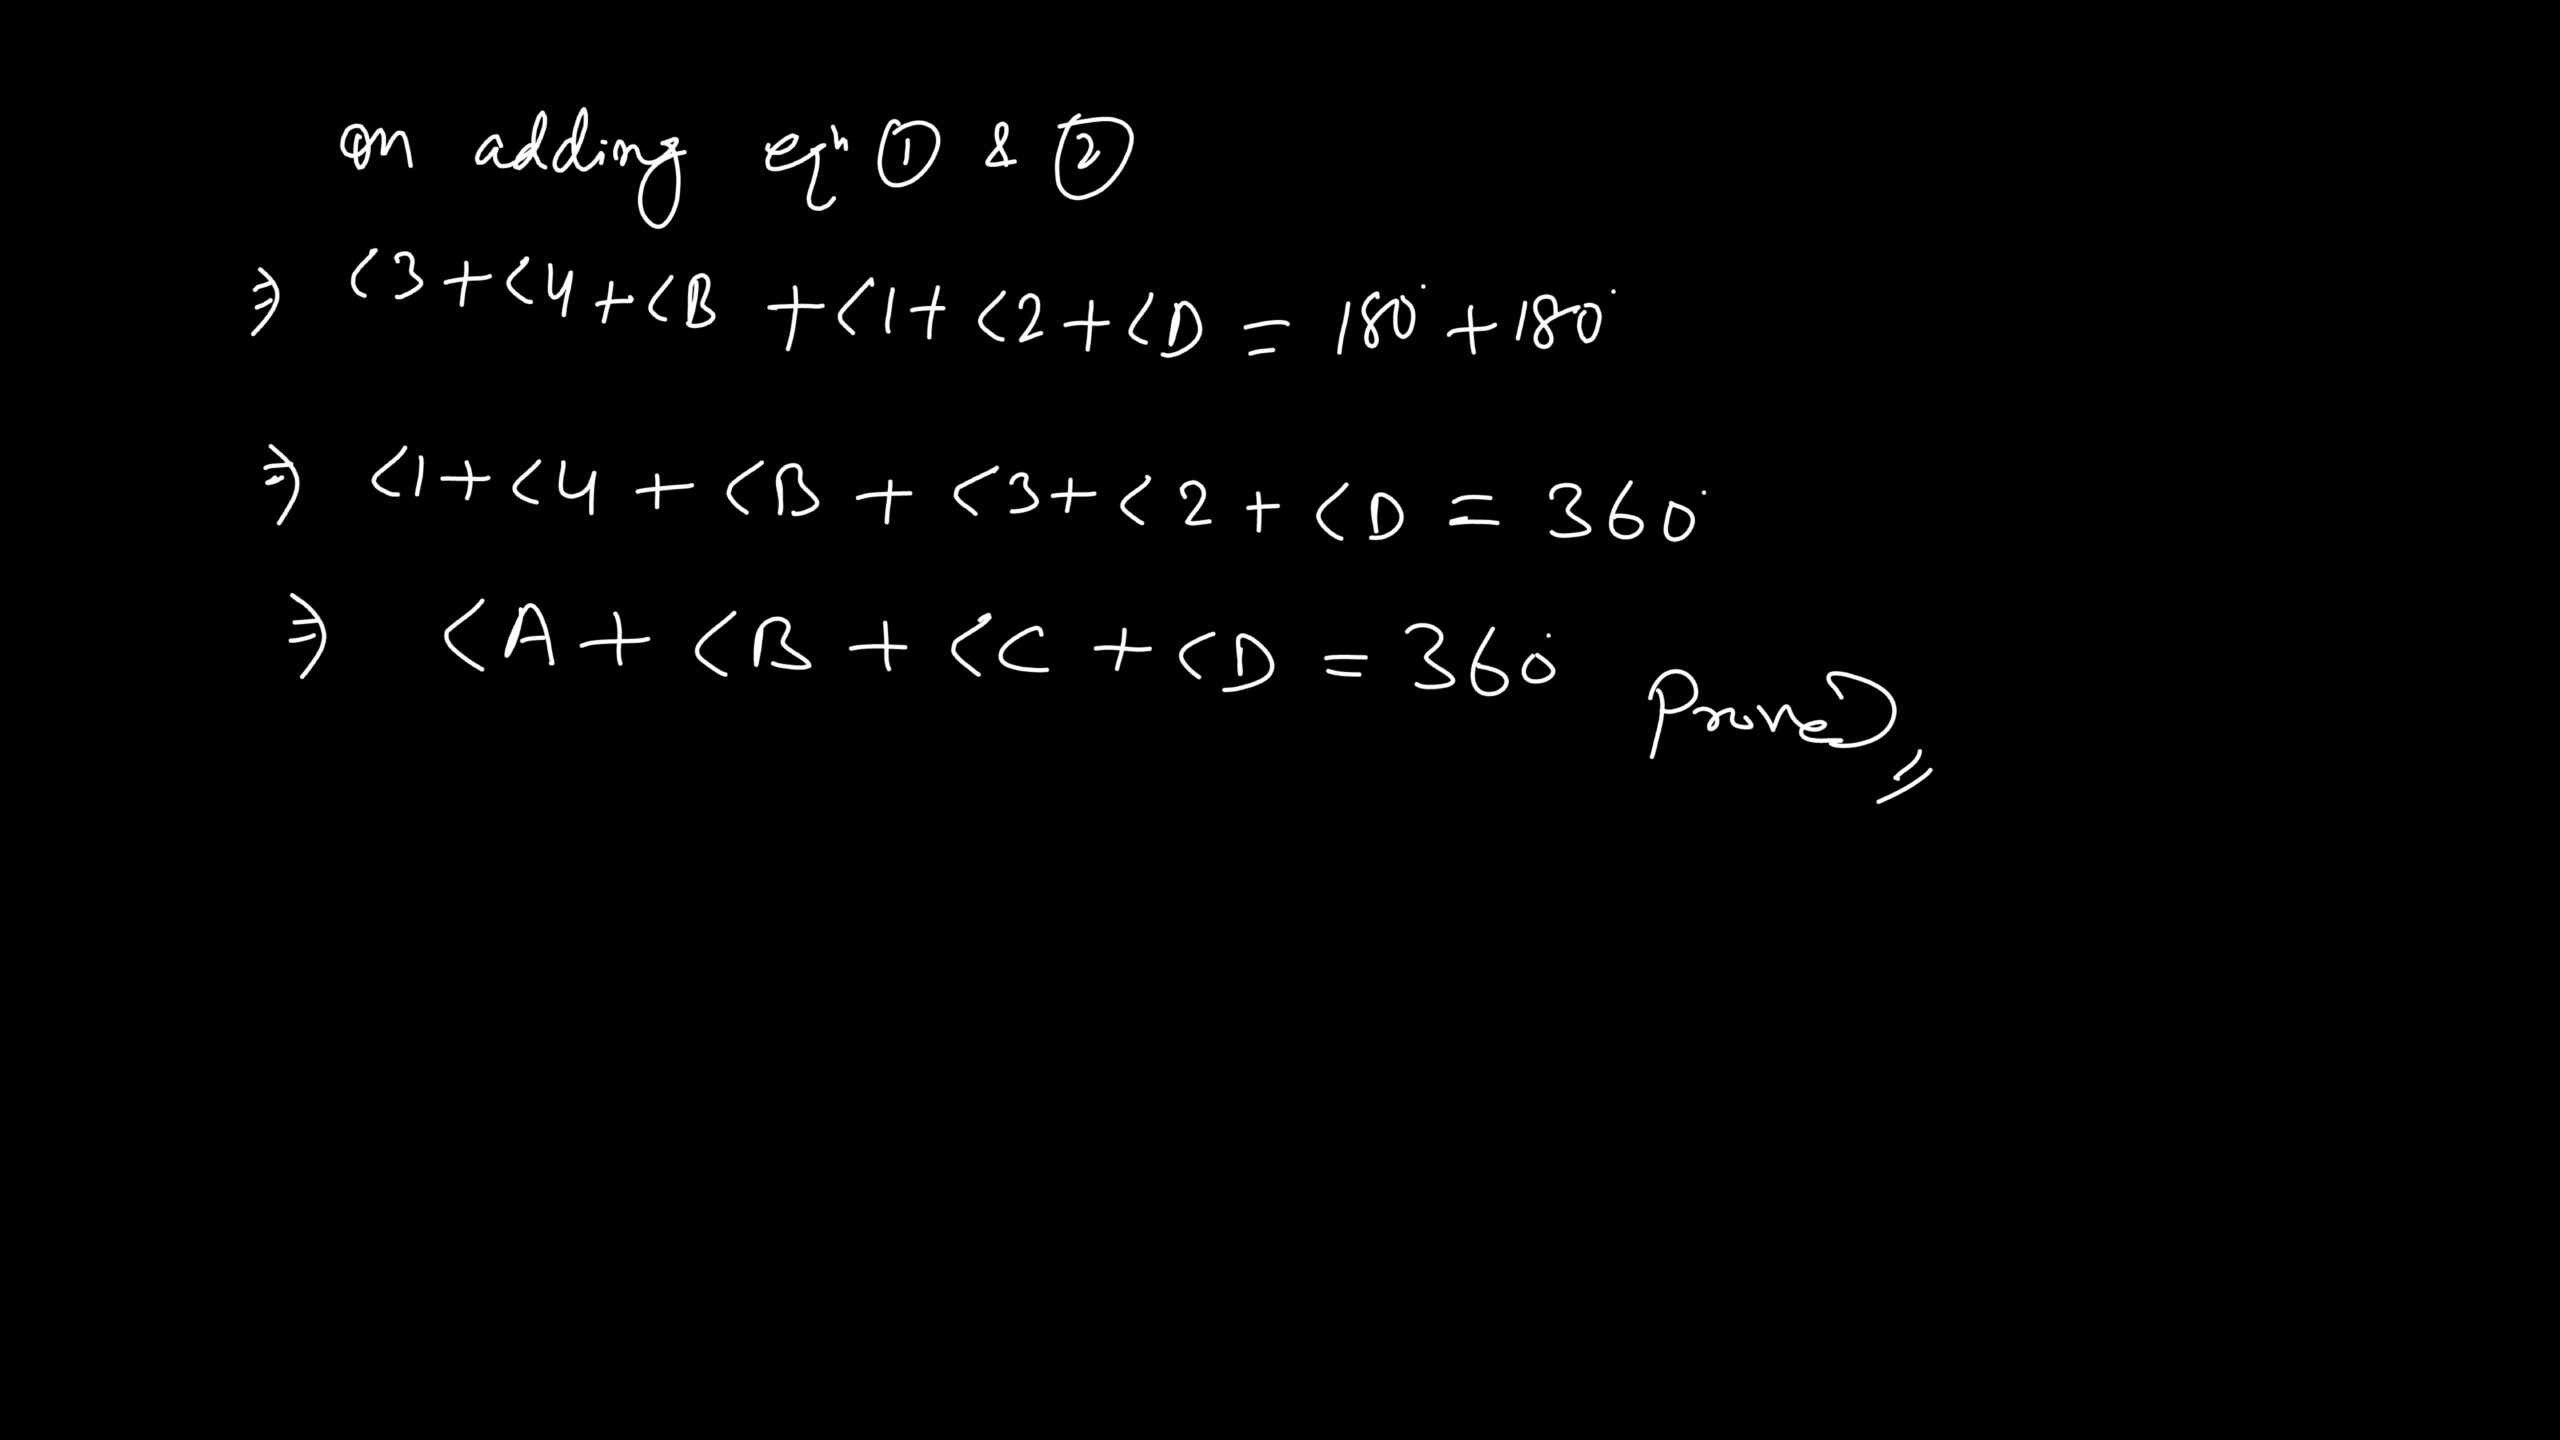 on adding eqⁿ ① & ②
⇒ <3+<4+<B +<1+<2+<D = 180°+180°
⇒ <1+<4+<B+<3+<2+<D = 360°
⇒ <A+<B+<C+<D = 360° Proved,,